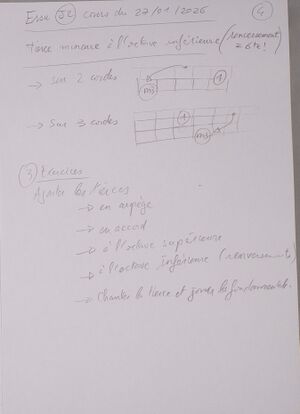 Essu (J2) cours du 27/01/2026 (4)
Tierce mineure à l'octave inférieure (renversement
= 6te !)
→ sur 2 cordes
m3 1
→ Sur 3 cordes
1
m3
3 Exercices
Ajouter les tierces
→ en arpège
→ en accord
→ à l'octave supérieure
→ à l'octave inférieure (renversement)
→ Chanter la tierce et jouer la fondamentale.